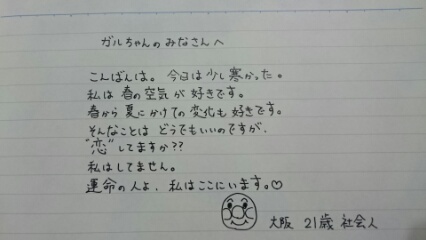 ガルちゃんのみなさんへ
こんばんは。今日は少し寒かった。
私は春の空気が好きです。
春から夏にかけての変化も好きです。
そんなことはどうでもいいのですが、
"恋"してますか??
私はしてません。
運命の人よ、私はここにいます。♡
大阪 21歳 社会人